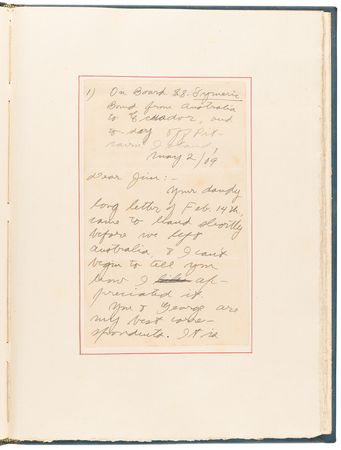 1) On Board SS. Tymeric
Bound from Australia
to Ecuador, and
to-day off Pit-
cairn Island,
May 2/09
Dear Jim:-
Your dandy
long letter of Feb. 14th,
came to hand shortly
before we left
Australia, & I can't
begin to tell you
how I like ap-
preciated it.
You & George are
my best corre-
spondents. It is